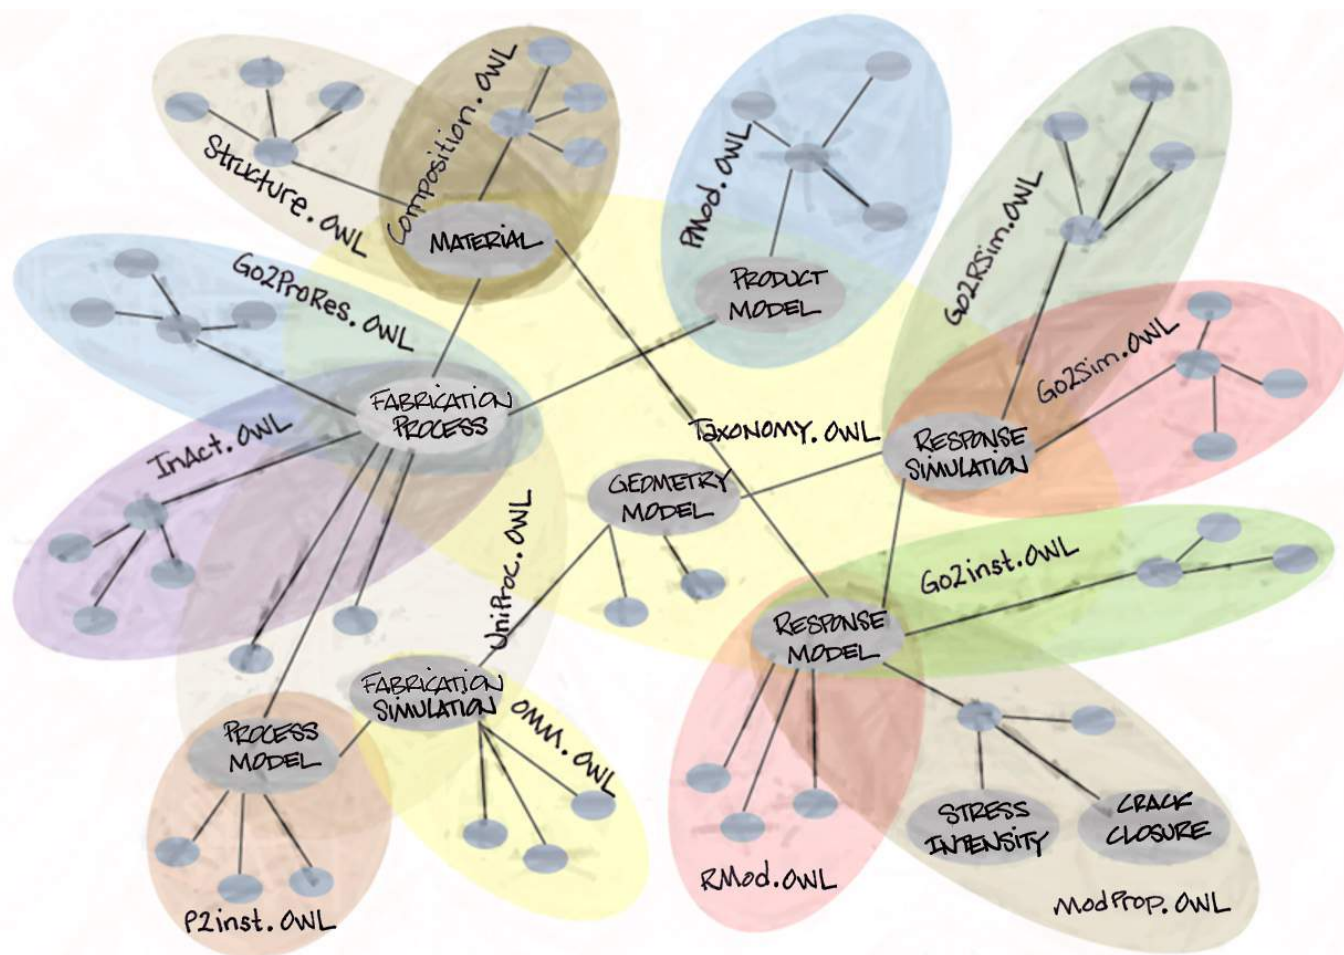 Structure.OWL
Composition.OWL
MATERIAL
PMod.OWL
PRODUCT
MODEL
Go2RSim.OWL
Go2ProRes.OWL
Go2Sim.OWL
FABRICATION
PROCESS
InAct.OWL
Taxonomy.OWL
RESPONSE
SIMULATION
GEOMETRY
MODEL
UniProc.OWL
Go2inst.OWL
RESPONSE
MODEL
FABRICATION
SIMULATION
OMM.OWL
PROCESS
MODEL
STRESS
INTENSITY
CRACK
CLOSURE
RMod.OWL
ModProp.OWL
P2inst.OWL